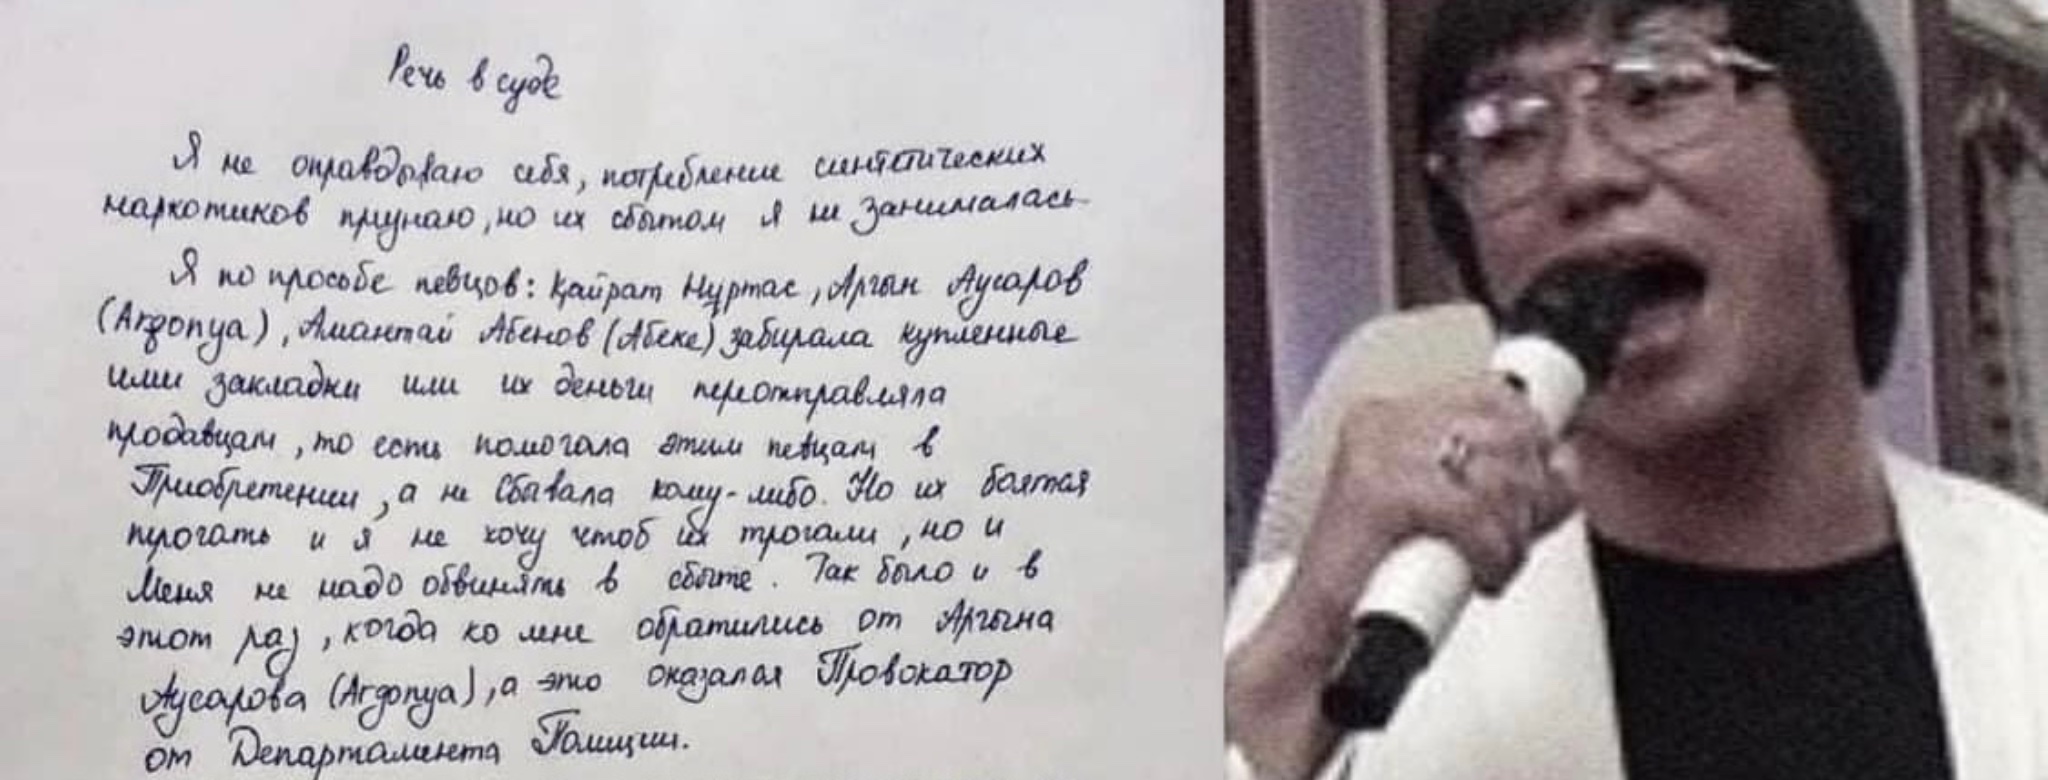 Речь в суде
Я не оправдываю себя, потребление синтетических
наркотиков признаю, но их сбытом я не занималась
Я по просьбе певцов: Қайрат Нұртас, Аргын Аусаров
(Argonya), Амантай Абенов (Абеке) забирала купленные
ими закладки или их деньги переотправляла
продавцам, то есть помогала этим певцам в
Приобретении, а не Сбывала кому-либо. Но их боятся
трогать и я не хочу чтоб их трогали, но и
Меня не надо обвинять в сбыте. Так было и в
этот раз, когда ко мне обратились от Аргына
Аусарова (Argonya), а это оказался Провокатор
от Департамента Полиции.